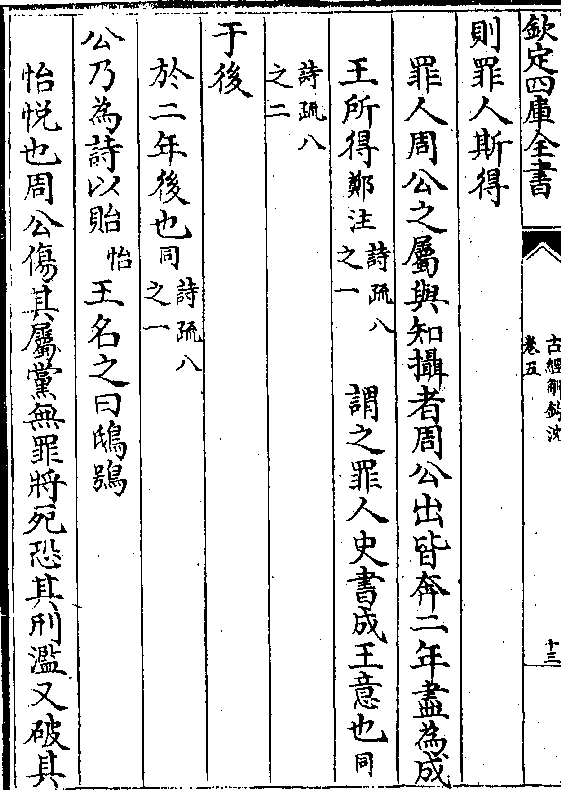 欽定四庫全書
古經解鉤沈
卷五
十三
則罪人斯得
罪人周公之屬與知攝者周公出皆奔二年盡為成
王所得鄭注詩疏八之一謂之罪人史書成王意也同
詩疏八之二
于後
於二年後也同詩疏八之一
公乃為詩以貽怡王名之曰鴟鴞
怡悅也周公傷其屬黨無罪將死恐其刑濫又破其